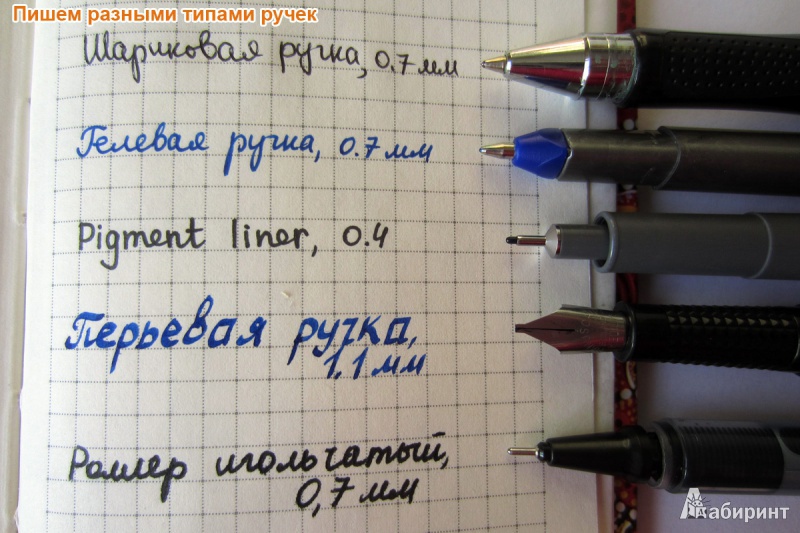 Пишем разными типами ручек
Шариковая ручка, 0.7 мм
Гелевая ручка, 0.7 мм
Pigment liner, 0.4
Перьевая ручка,
1.1 мм
Роллер игольчатый,
0,7 мм
Лабиринт